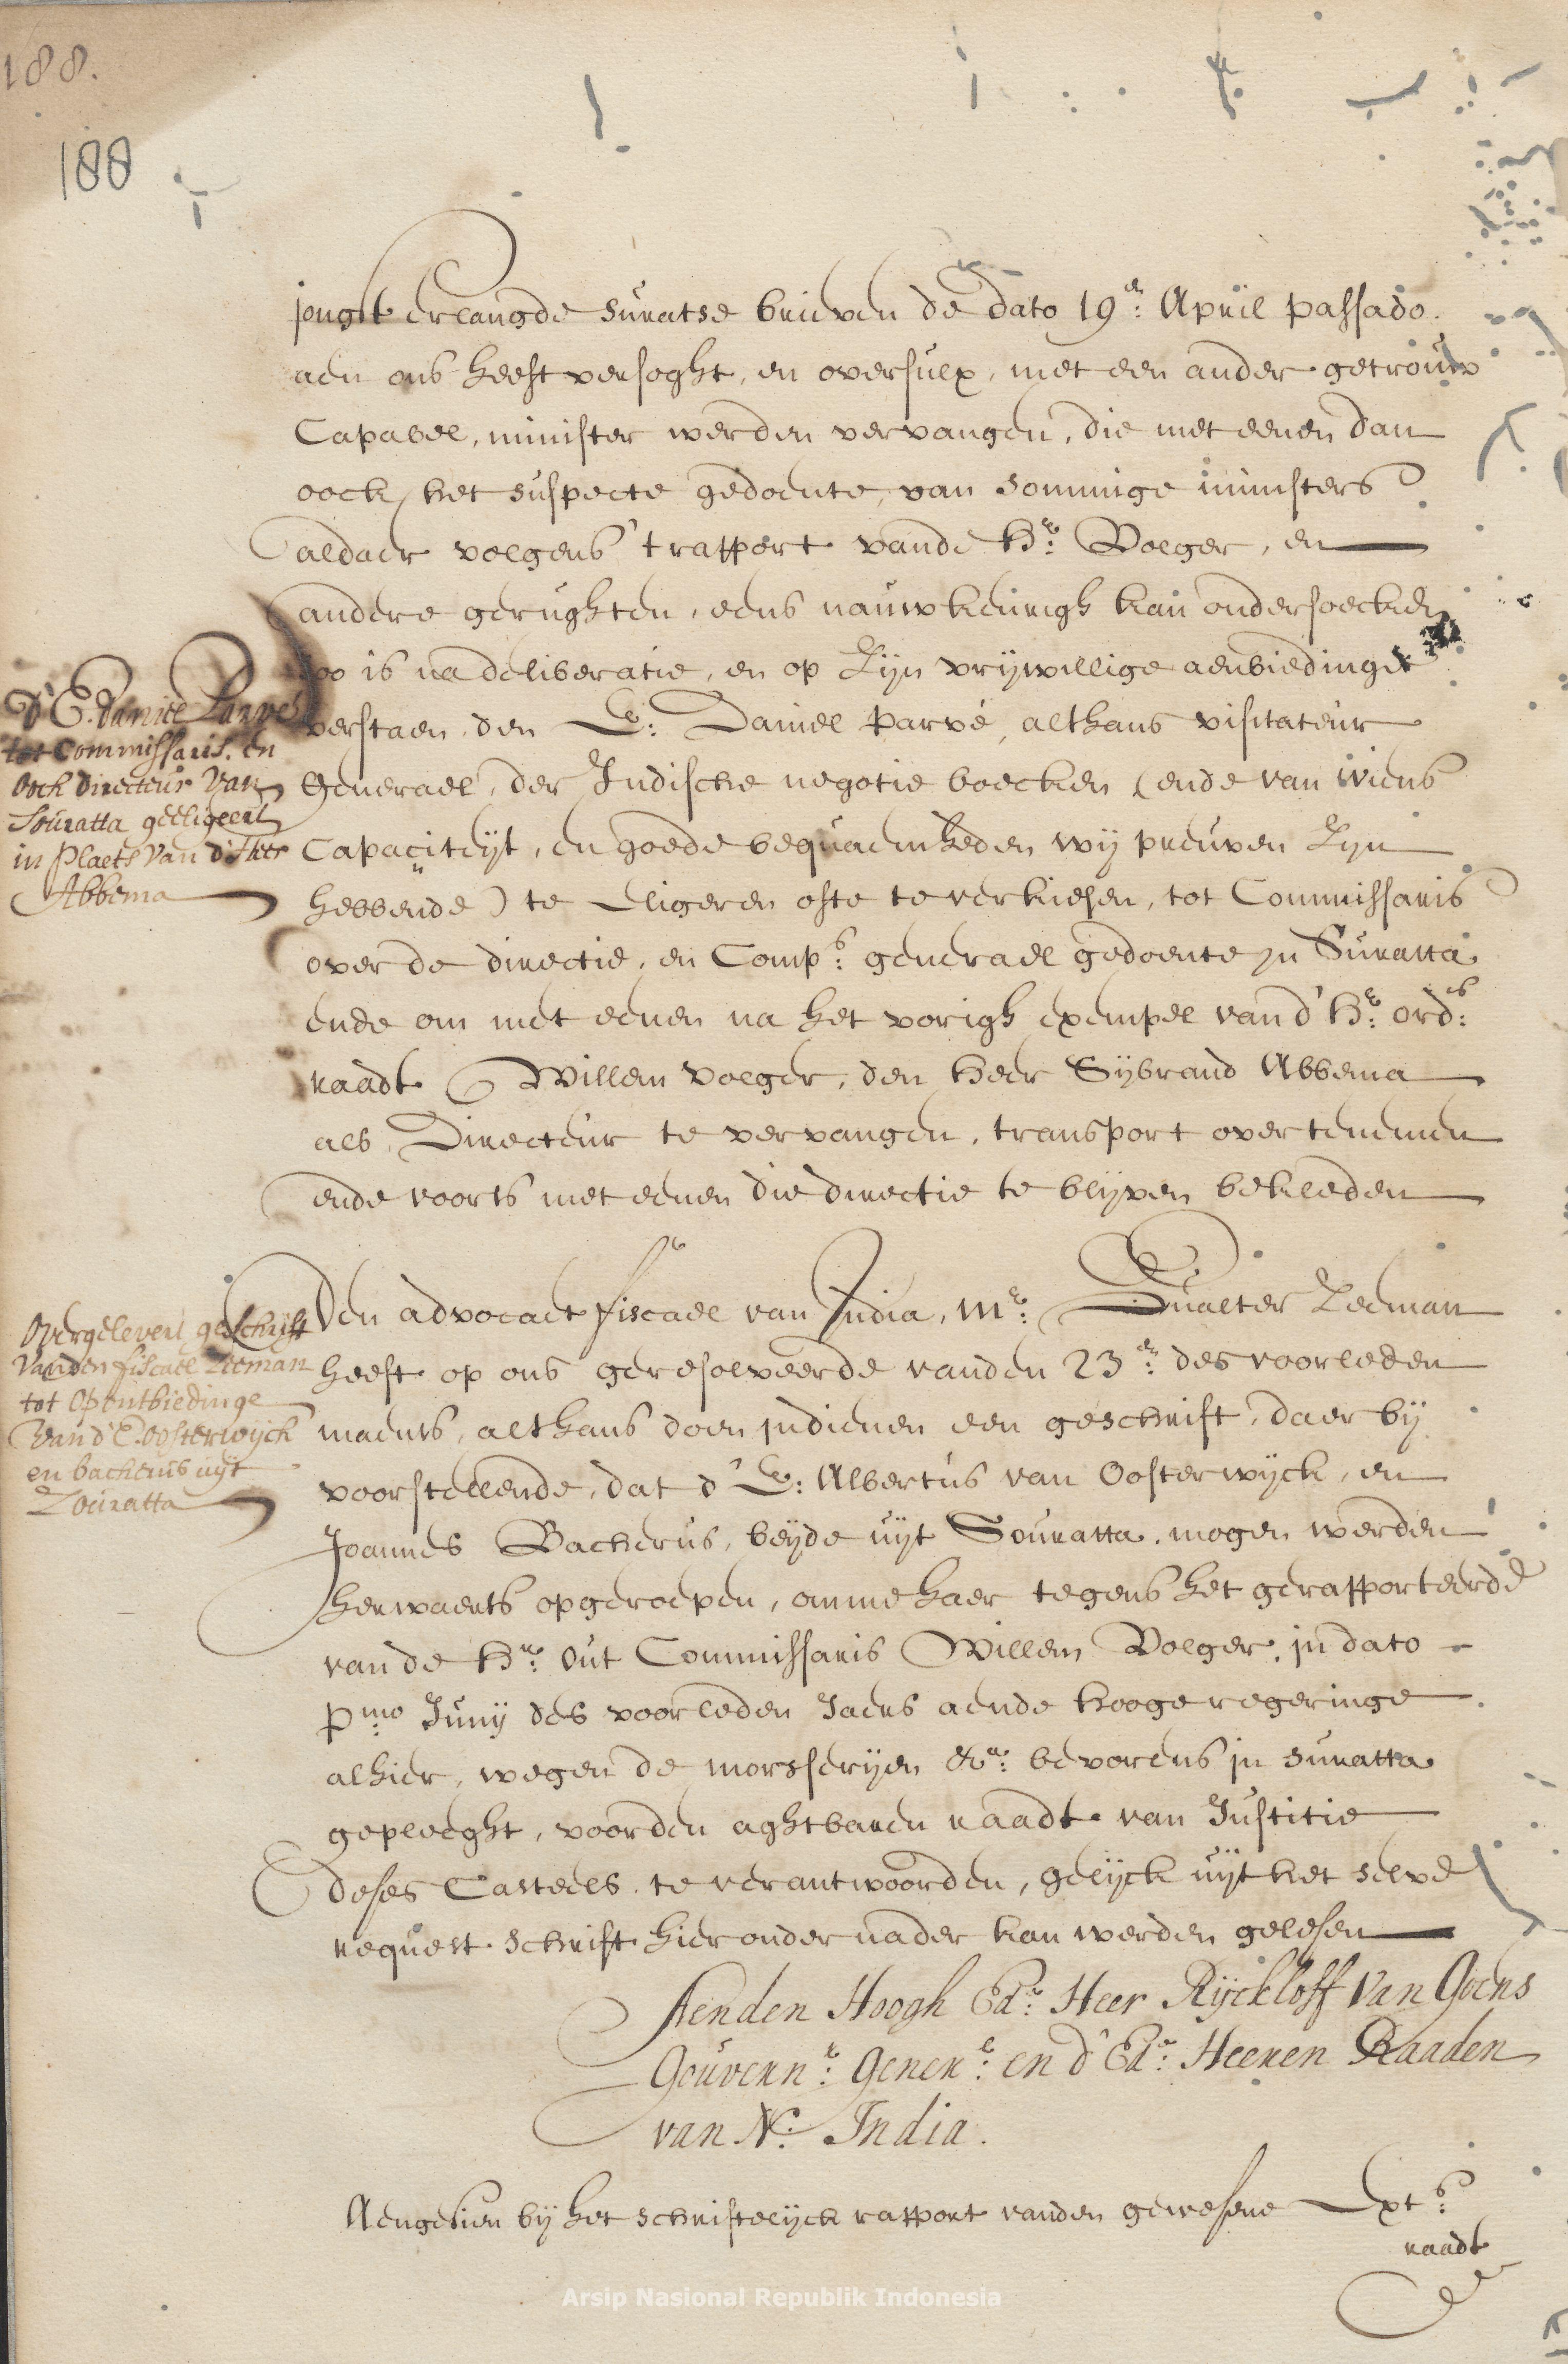 188.
188
jongst erlangde Suratse brieven de dato 19.en April passado.
aen ons heeft versoght, en oversulx, met een ander getrouw
Capabel, minister werden vervangen, die met eenen dan
oock, het suspecte gedoente, van sommige ministers
aldaer volgens 't rapport vande Hr. Volger, en
andere gerughten, eens nauwkeurigh kan ondersoecken
soo is na deliberatie, en op Zijn vrijwillige aenbiedinge
verstaen, den E: Daniel Parvé, althans visitateur
Generael, der Indische negotie boecken (ende van wiens
Capaciteÿt, en goede bequaemheden wij preuven Zijn
hebbende) te Eligeren ofte te verkiesen, tot Commissaris
over de directie, en Comps. generael gedoente in Suratta
ende om met eenen na het vorigh exempel van d' Hr. ordis.
raadt Willem Volger, den Heer Sÿbrand Abbema
als Directeur te vervangen, transport overtenemen
ende voorts met eenen die directie te blijven bekleden
D'E. Daniel Parvé
tot Commissaris. en
oock directeur van
Souratta geeligeert
in plaets van d'Hr
Abbema
Den advocaet fiscael van India, Mr. Gualter Zeeman
heeft op ons geresolveerde vanden 23.en des voorleden
maents, althans doen indienen een geschrift, daer bij
voorstellende, dat d' E: Albertus van Oosterwijck, en
Joannes Bacherus, beÿde uÿt Souratta, mogen werden
herwaerts opgeroepen, omme haer tegens het gerapporteerde
van de Hr. Out Commissaris Willem Volger, in dato
pmo. Junij des voorleden Jaers aende hooge regeringe
alhier, wegen de morsserijen &a. bevorens in Suratta
gepleeght, voorden aghtbaren raadt van Justitie
deses Casteels te verantwoorden, gelijck uÿt het selve
request schrift hier onder nader kan werden gelesen
Overgelevert geschrift
vanden fiscael Zeeman
tot Opentbiedinge
van d'E. Oosterwijck
en bacherus uijt
Zouratta
Aenden Hoogh Ede. Heer Rijckloff van Goens
Gouvernr. Gener. en d' Ede. Heeren Raaden
van N. India.
Aengesien bij het schriftelijck rapport vanden gewesene Exts.
raadt
Arsip Nasional Republik Indonesia